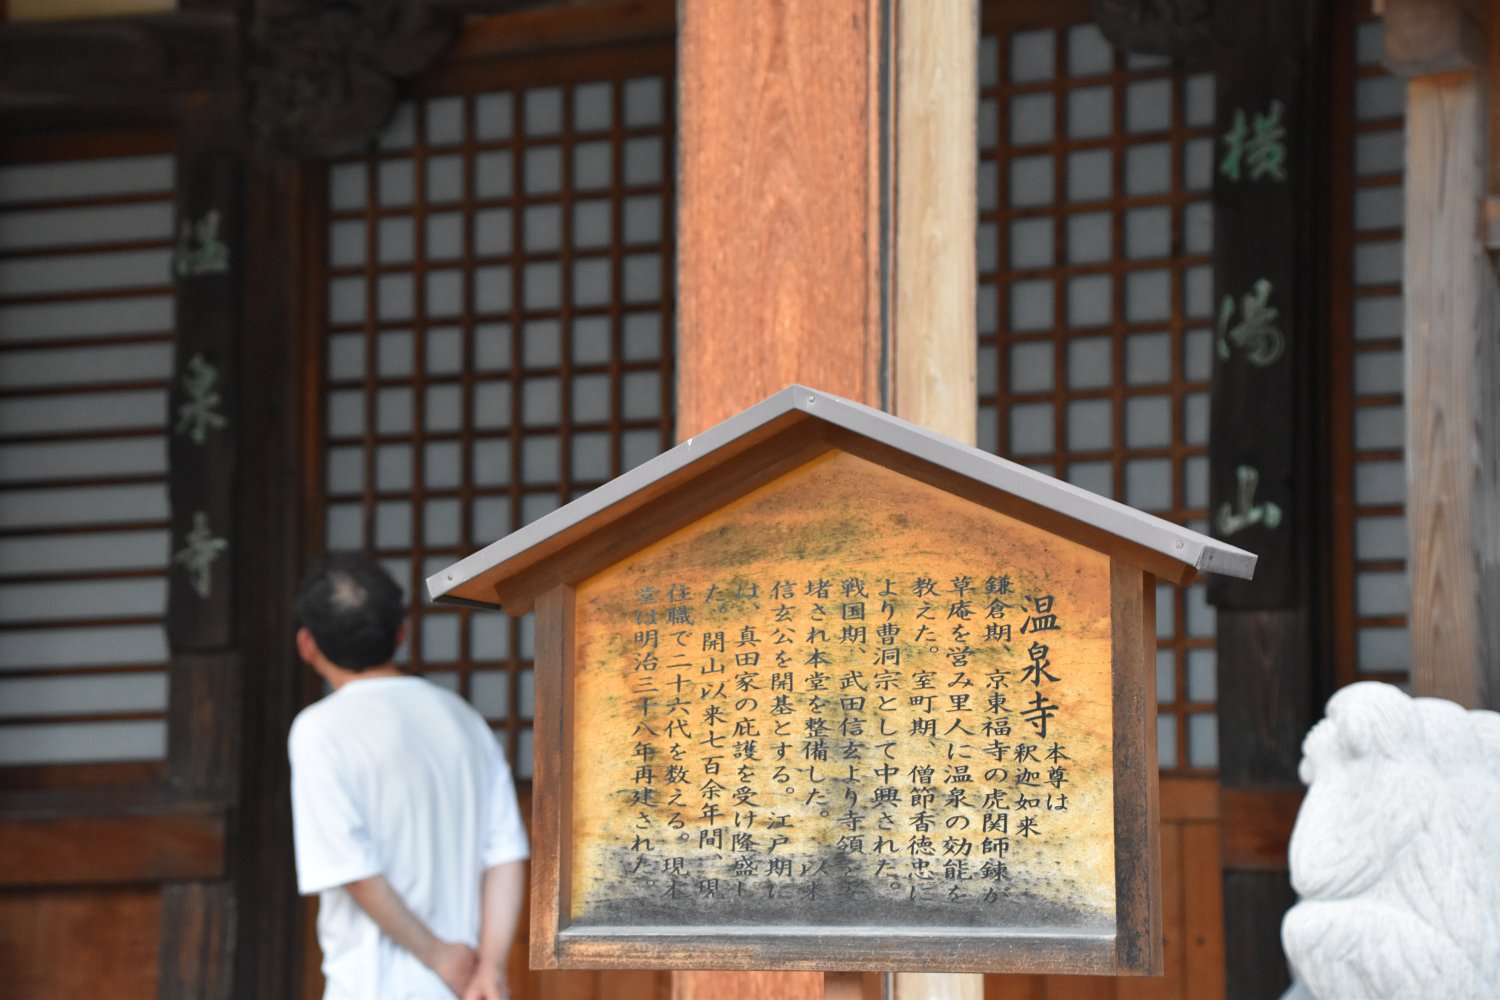 横湯山
温泉寺
温泉寺
本尊は
釈迦如来
鎌倉期、京東福寺の虎関師錬が
草庵を営み里人に温泉の効能を
教えた。室町期、僧節香徳忠に
より曹洞宗として中興された。
戦国期、武田信玄より寺領を
堵され本堂を整備した。以来
信玄公を開基とする。江戸期に
は、真田家の庇護を受け隆盛し
た。開山以来七百余年間、現
住職で二十六代を数える。現本
堂は明治三十八年再建された。